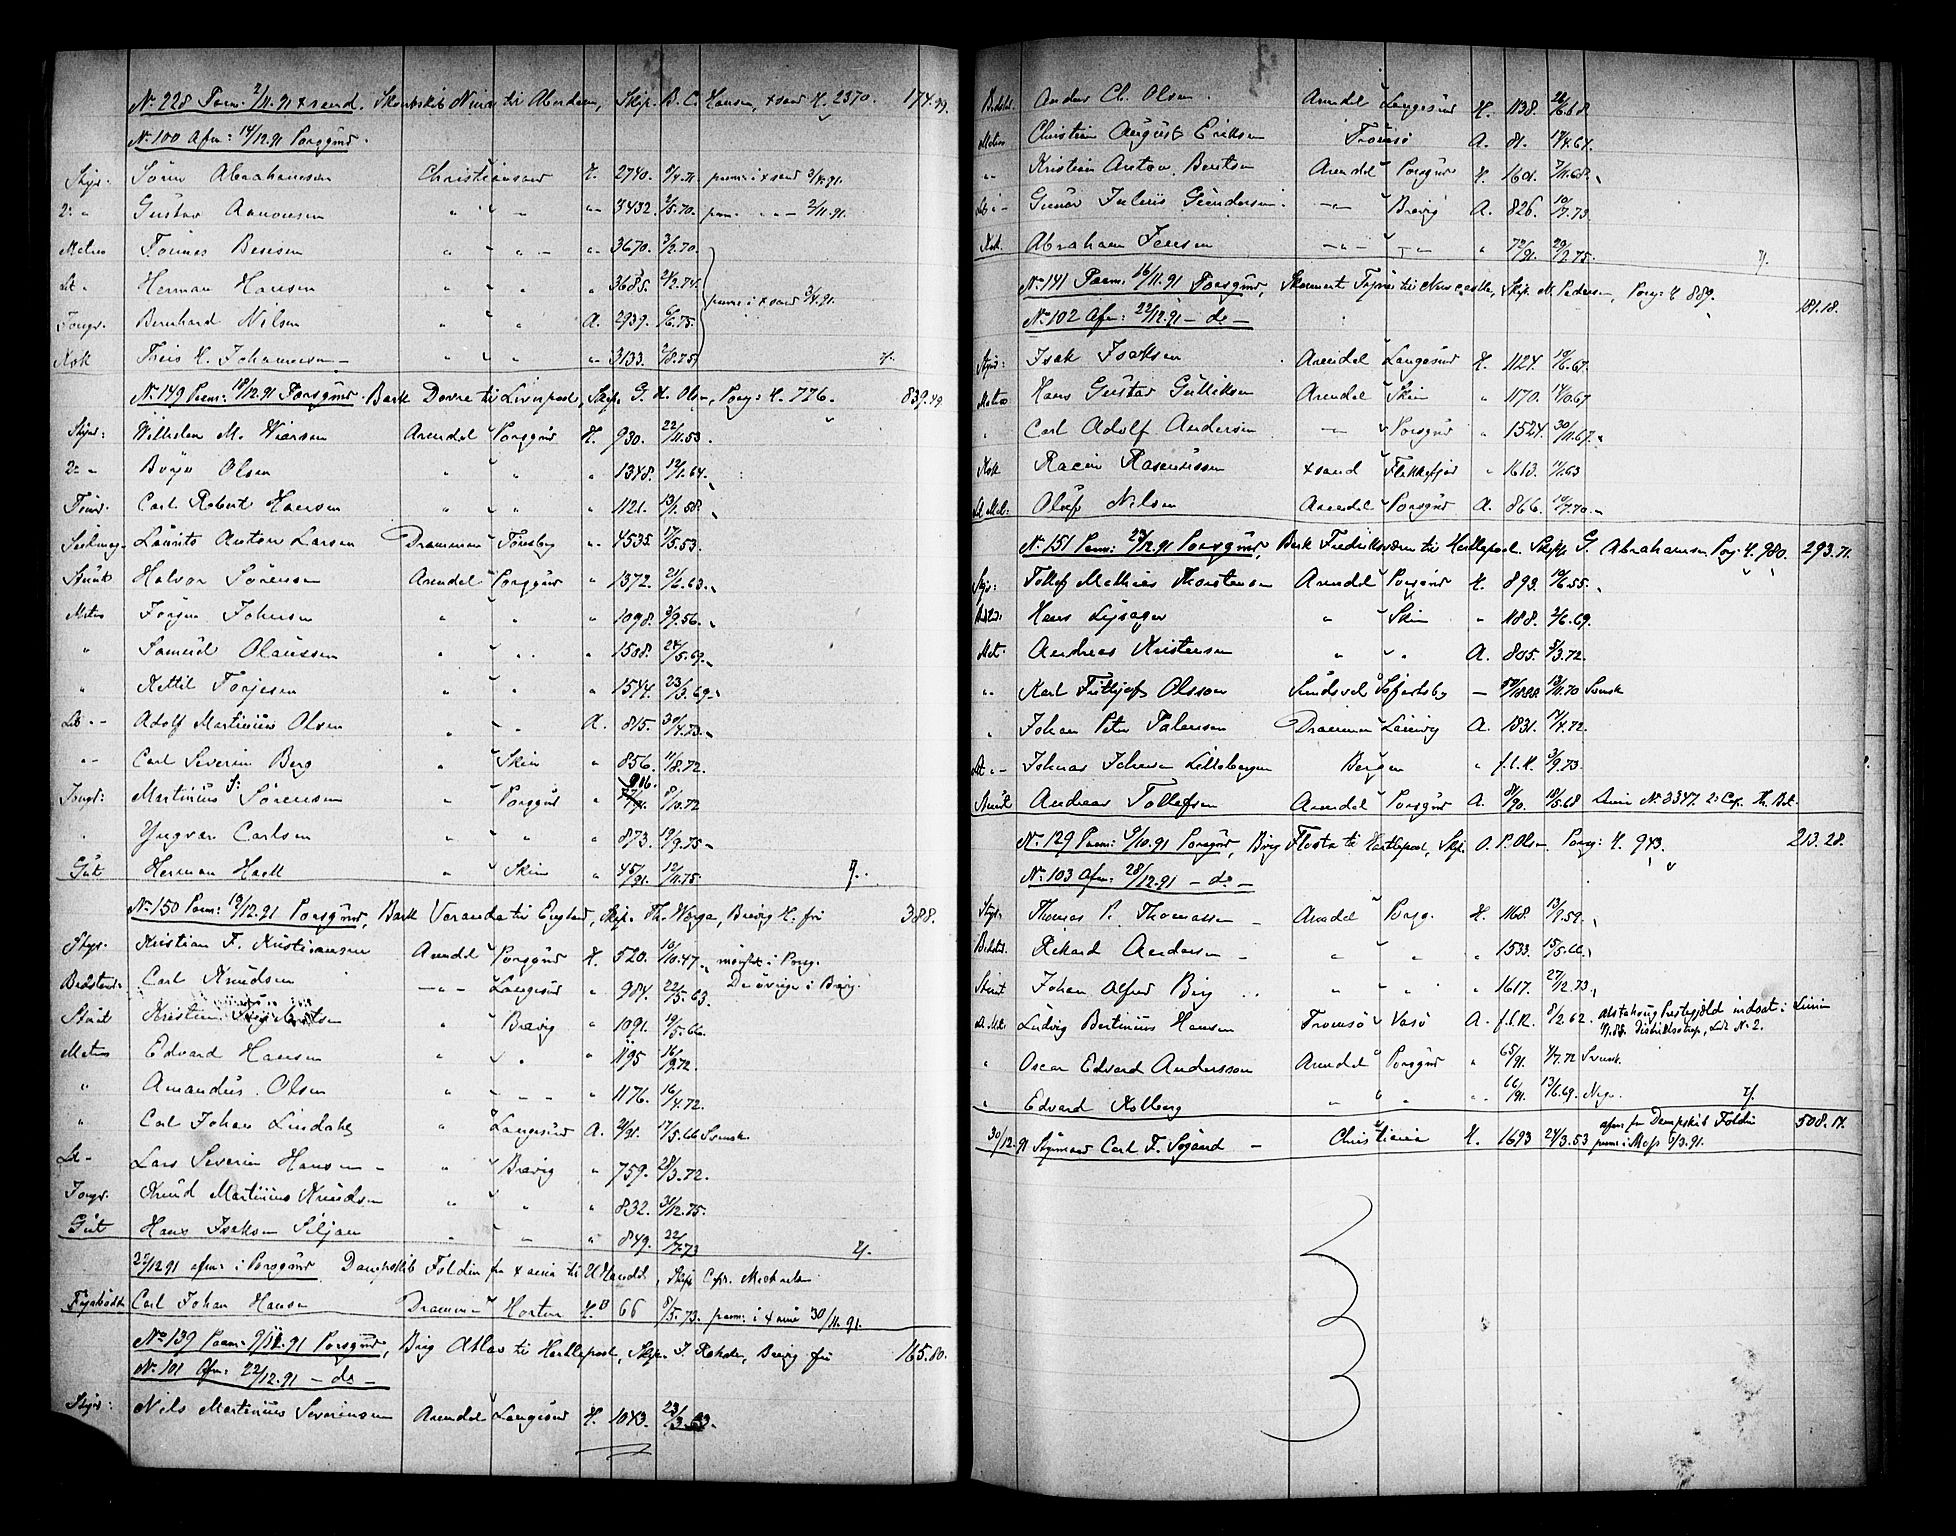 No 228 Paam. 2/11.91 Xsand. til Aberdeen, Skip. B. C. Hansen, Xsand H. 2370. 174.49
No 100 Afm: 14/12.91 Porsgrund.
Styr: Sören Abrahamsen Christiansand H. 2740. paam: i Xsand 91.
2: " Gustav Aanonsen " " " 3432. 2/5.70. paam. " " 2/11.91.
Matros Tönnes Bensen " " " 3670. 3/2.70.
Let " Herman Hansen " " " 3685. 24/2.74. paam: i Xsand 91.
Jungm. Bernhard Nilsen " " A. 2939. 6/6.75.
Kok Theis H. Johannesen " " " 3133. 75.
No 149 Paam: 18/12.91 Porsgrund. Bark Dovre til Liverpool, Skip. G. H. Olsen, Porsg: H. 776. 839.49
Styrm: Wilhelm M. Wiersen Arendal Porsgrund H. 930. 22/11.53.
2: " Börje Olsen " " " 1348. 12/1.64.
Tömr. Carl Robert Hansen " " " 1121. 13/1.58.
Seilmag. Laurits Anton Larsen Drammen Tönsberg " 4535. 17/5.53.
Stuert Halvor Sörensen Arendal Porsgrund " 1372. 21/6.63.
Matros Jörgen Johnsen " " " 1098. 3/9.56.
" Samuel Olaussen " " " 1588. 24/5.69.
" Kettil Torjesen " " " 1544. 23/3.69.
Let " Adolf Martinius Olsen " " A. 815. 30/4.73.
" Carl Severin Berg " Skien " 856. 11/8.72.
Jungm: Martinius S: Sörensen " Porsgrund " 906. 8/10.72
" Yngvar Carlsen " " " 873. 19/9.75
Gut Herman Hoell " Skien " 45/91. 12/11.75.
No 150 Paam: 19/12.91 Porsgrund, Bark Veranda til England, Skip. Th. Brevig H. fri 388.
Styr. Kristian F. Kristiansen Arendal Porsgrund H. 520. 10/10.47. mönstr. i Porsg.
Bedstmd: Carl Knudsen " Langesund " 984. 22/5.63. De övrige i Brevig.
Stuert Kristian " Brevig " 1091. 19/5.66.
Matros Edvard Hansen " " " 1195 16/9.72.
" Amandus Olsen " " " 1176. 16/4.72.
" Carl Johan Lindahl " Langesund A. 2/91. 17/5.66 Svensk.
Let " Lars Severin Hansen " Brevig " 759. 28/3.72.
Jungm. Knud Martinius Knudsen " " " 832. 31/12.75.
Gut Hans Isaksen Siljan " " " 849. 22/7.73
22/12 91 afm: i Porsgrund Dampskib Foldin fra Xania til Udlandet, Skip Michaelsen
Fyrböder Carl Johan Hansen Drammen Horten H. 66 8/5.73. paam: i Xania 30/11.91.
No 139 Paam: 9/11.91 Porsgrund, Brig Atlas til Hartlepool, Skip. J. Rohde, Brevig fri 165.80.
No 101 Afm: 22/12.91 – do –
Styrm: Nils Martinius Severinsen Arendal Langesund H. 1043. 23/3.63.
Bedstm. Anders Ch. Olsen Arendal Langesund H. 1138. 68.
Matros Christian August Eriksen Tromsö A. 81. 17/4.64.
" Kristian Anton Bentsen Arendal Porsgrund H. 1601. 7/11.68.
Let " Gunar Julius Gundersen " Brevig A. 826. 10/7.73
Kok. Abraham Jensen " " " 72/91. 20/2.75.
No 141 Paam: 16/11.91 Porsgrund, Skonnert til Newcastle, Skip. N. Pedersen, Porsg: H 889. 181.18.
No 102 Afm: 22/12.91 – do –
Styrm: Isak Isaksen Arendal Langesund H. 1124. 19/6.67.
Matros Hans Gustav Gulliksen Arendal Skien " 1170. 14/10.67
" Carl Adolf Andersen " Porsgrund " 1524. 30/11.67.
Kok Racin Rasmussen Xsand Flekkefjord " 1613. 63
Let Mat. Oluf Nilsen Arendal Porsgrund A. 866. 10/7.70.
No 151 Paam: 23/12.91 Porsgrund, Bark Fredriksværn til Hartlepool. Skip. G. Abrahamsen Porsg. H. 980. 293.71.
Styr: Tollef Mathias Thorstensen Arendal Porsgrund H. 893. 19/6.55.
Bedstm: Hans Lysager " Skien " 1188. 2/6.69.
Mat: Andreas Kristensen " " A. 805. 5/3.72.
" Karl Frithjof Olsson Sundsval – 52/1888 13/11.70 Svensk
" Johan Peter Paulensen Drammen Laurvig A. 1831. 17/4.72.
Let " Johnas Johnsen Lilleberger Bergen " f.l.R. 3/9.73.
Stuert Andreas Tollefsen Arendal Porsgrund A. 8/90. 10/5.68 Linie No 3347. 2: Cop. Th. Bat.
No 129 Paam: 9/10.91 Porsgrund, Brig Flosta til Hartlepool, Skip. O. P. Olsen Porsg: H. 943. 213.28.
No 103 Afm: 28/12.91 – do –
Styr. Thomas P. Thomassen – Arendal Porsg. H. 1168. 13/9.59.
Bedstd. Rikard Andersen – " " " 1533. 15/5.66.
Stuert Johan Alfred Berg " " " 1617. 27/12.73.
Let. Mat. Ludvig Bertinius Hansen Tromsö Vasö A. f.l.R. 8/2.62. indsat i Linien
Distriktstrop, Let No 2.
" Oscar Edvard Anderssen Arendal Porsgrund " 65/91. 4/7.72 Svensk.
" Edvard Kolberg " " " 66/91. 13/6.69.
30/12.91 Styrmand Carl F. Sögaard – Christiania H. 1693 24/3.53 afm: fra Dampskib Foldin 508.17.
paam: i Moss 9/3.91.